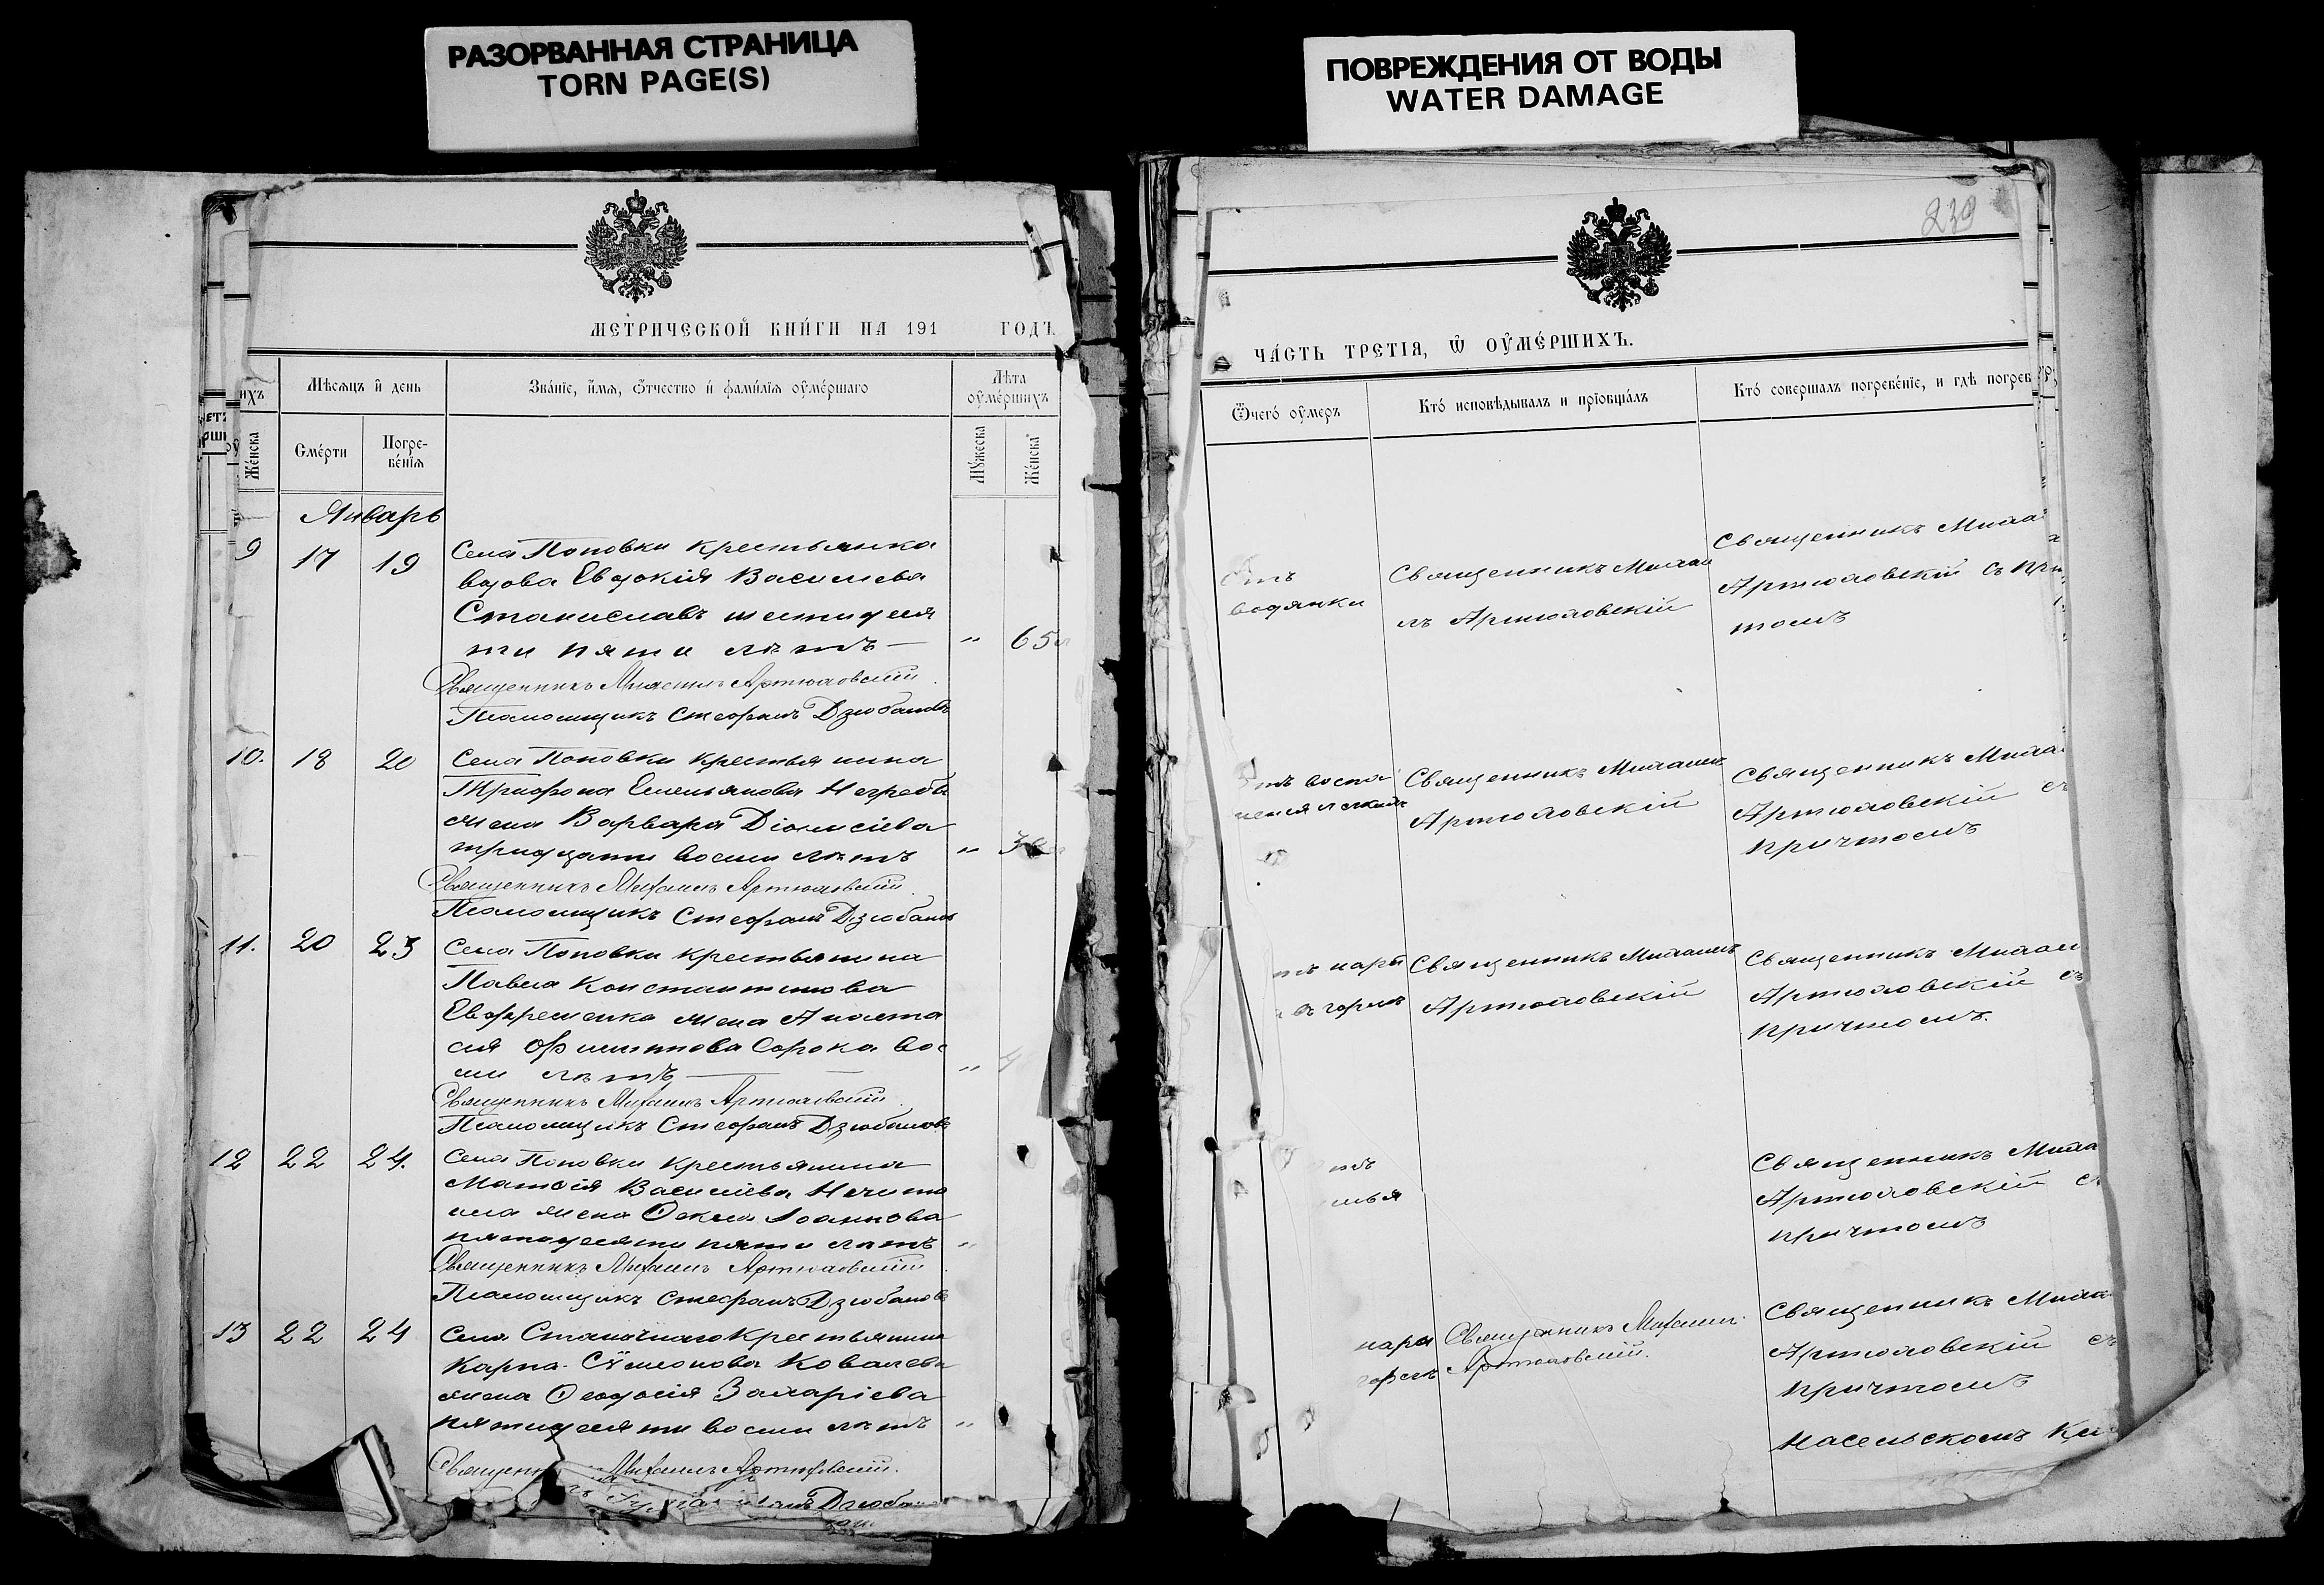 РАЗОРВАННАЯ СТРАНИЦА
TORN PAGE(S)
ПОВРЕЖДЕНИЯ ОТ ВОДЫ
WATER DAMAGE
МЕТРИЧЕСКОЙ КНИГИ НА 191 ГОДЪ
ихъ
Мѣсяцъ и день
Зва́нїе, и́мѧ, ѻ́тчество и҆ фами́лїѧ оу҆ме́ршагѡ
Лѣта
оу҆ме́ршихъ
Же́нска
Сме́рти
Погре-
бе́нїѧ
Мꙋ́жеска
Же́нска
Январь
9 17 19 Села Поповки крестьянка
вдова Евдокія Васильева
Станиславъ шестидеся
ти пяти лѣтъ — " 65
Священникъ Михаилъ Артюховскій.
Псаломщикъ Стефанъ Дзюбановъ
10. 18 20 Села Поповки крестьянина
Трифона Емельянова Негреба
жена Варвара Діонисіева
тридцати восми лѣтъ "
Священникъ Михаилъ Артюховскій.
Псаломщикъ Стефанъ Дзюбановъ
11. 20 23 Села Поповки крестьянина
Павла Константинова
Евфременко жена Анаста
сія Филиппова сорока во
ми лѣтъ — "
Священникъ Михаилъ Артюховскій.
Псаломщикъ Стефанъ Дзюбановъ
12 22 24. Села Поповки крестьянина
Матѳія Василіева
жена Ѳекла Іоаннова
пятидесяти пяти лѣтъ "
Священникъ Михаилъ Артюховскій.
Псаломщикъ Стефанъ Дзюбановъ
13 22 24 Села Станичнаго крестьянина
Карпа Сѵмеонова Ковалева
жена Ѳеодосія Захаріева
пятидесяти восми лѣтъ "
Михаилъ Артюховскій.
Дзюбан
239
ЧА́СТЬ ТРЕТІЯ, Ѿ ОУ҆МЕ́РШИХЪ.
Ѿчегѡ̀ оу҆́меръ
Кто̀ исповѣ́дывалъ и прїобща́лъ
Кто̀ соверша́лъ погребе́нїе, и гдѣ̀ погреб
Отъ
водянки
Священникъ Михаи
лъ Артюховскій
Священникъ Михаи
Артюховскій съ при
томъ
тъ воспа
ленія легкихъ
Священникъ Михаилъ
Артюховскій
Священникъ Михаи
Артюховскій съ
причтомъ
тъ нары
въ горлѣ
Священникъ Михаилъ
Артюховскій
Священникъ Михаил
Артюховскій съ
причтомъ.
тъ
Священникъ Миха
Артюховскій съ
причтомъ
нары
горлѣ
Священникъ Михаилъ
Артюховскій.
Священникъ Михаи
Артюховскій съ
причтомъ